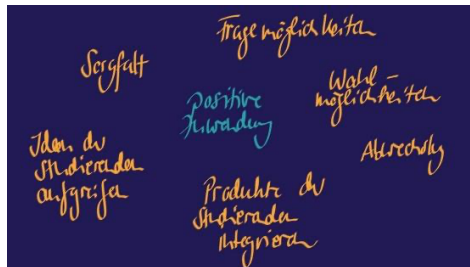 Fragemöglichkeiten
Sorgfalt
Wahl-
möglichkeiten
Positive
Zuwendung
Ideen der
Studierenden
aufgreifen
Abwechslung
Produkte der
Studierenden
integrieren